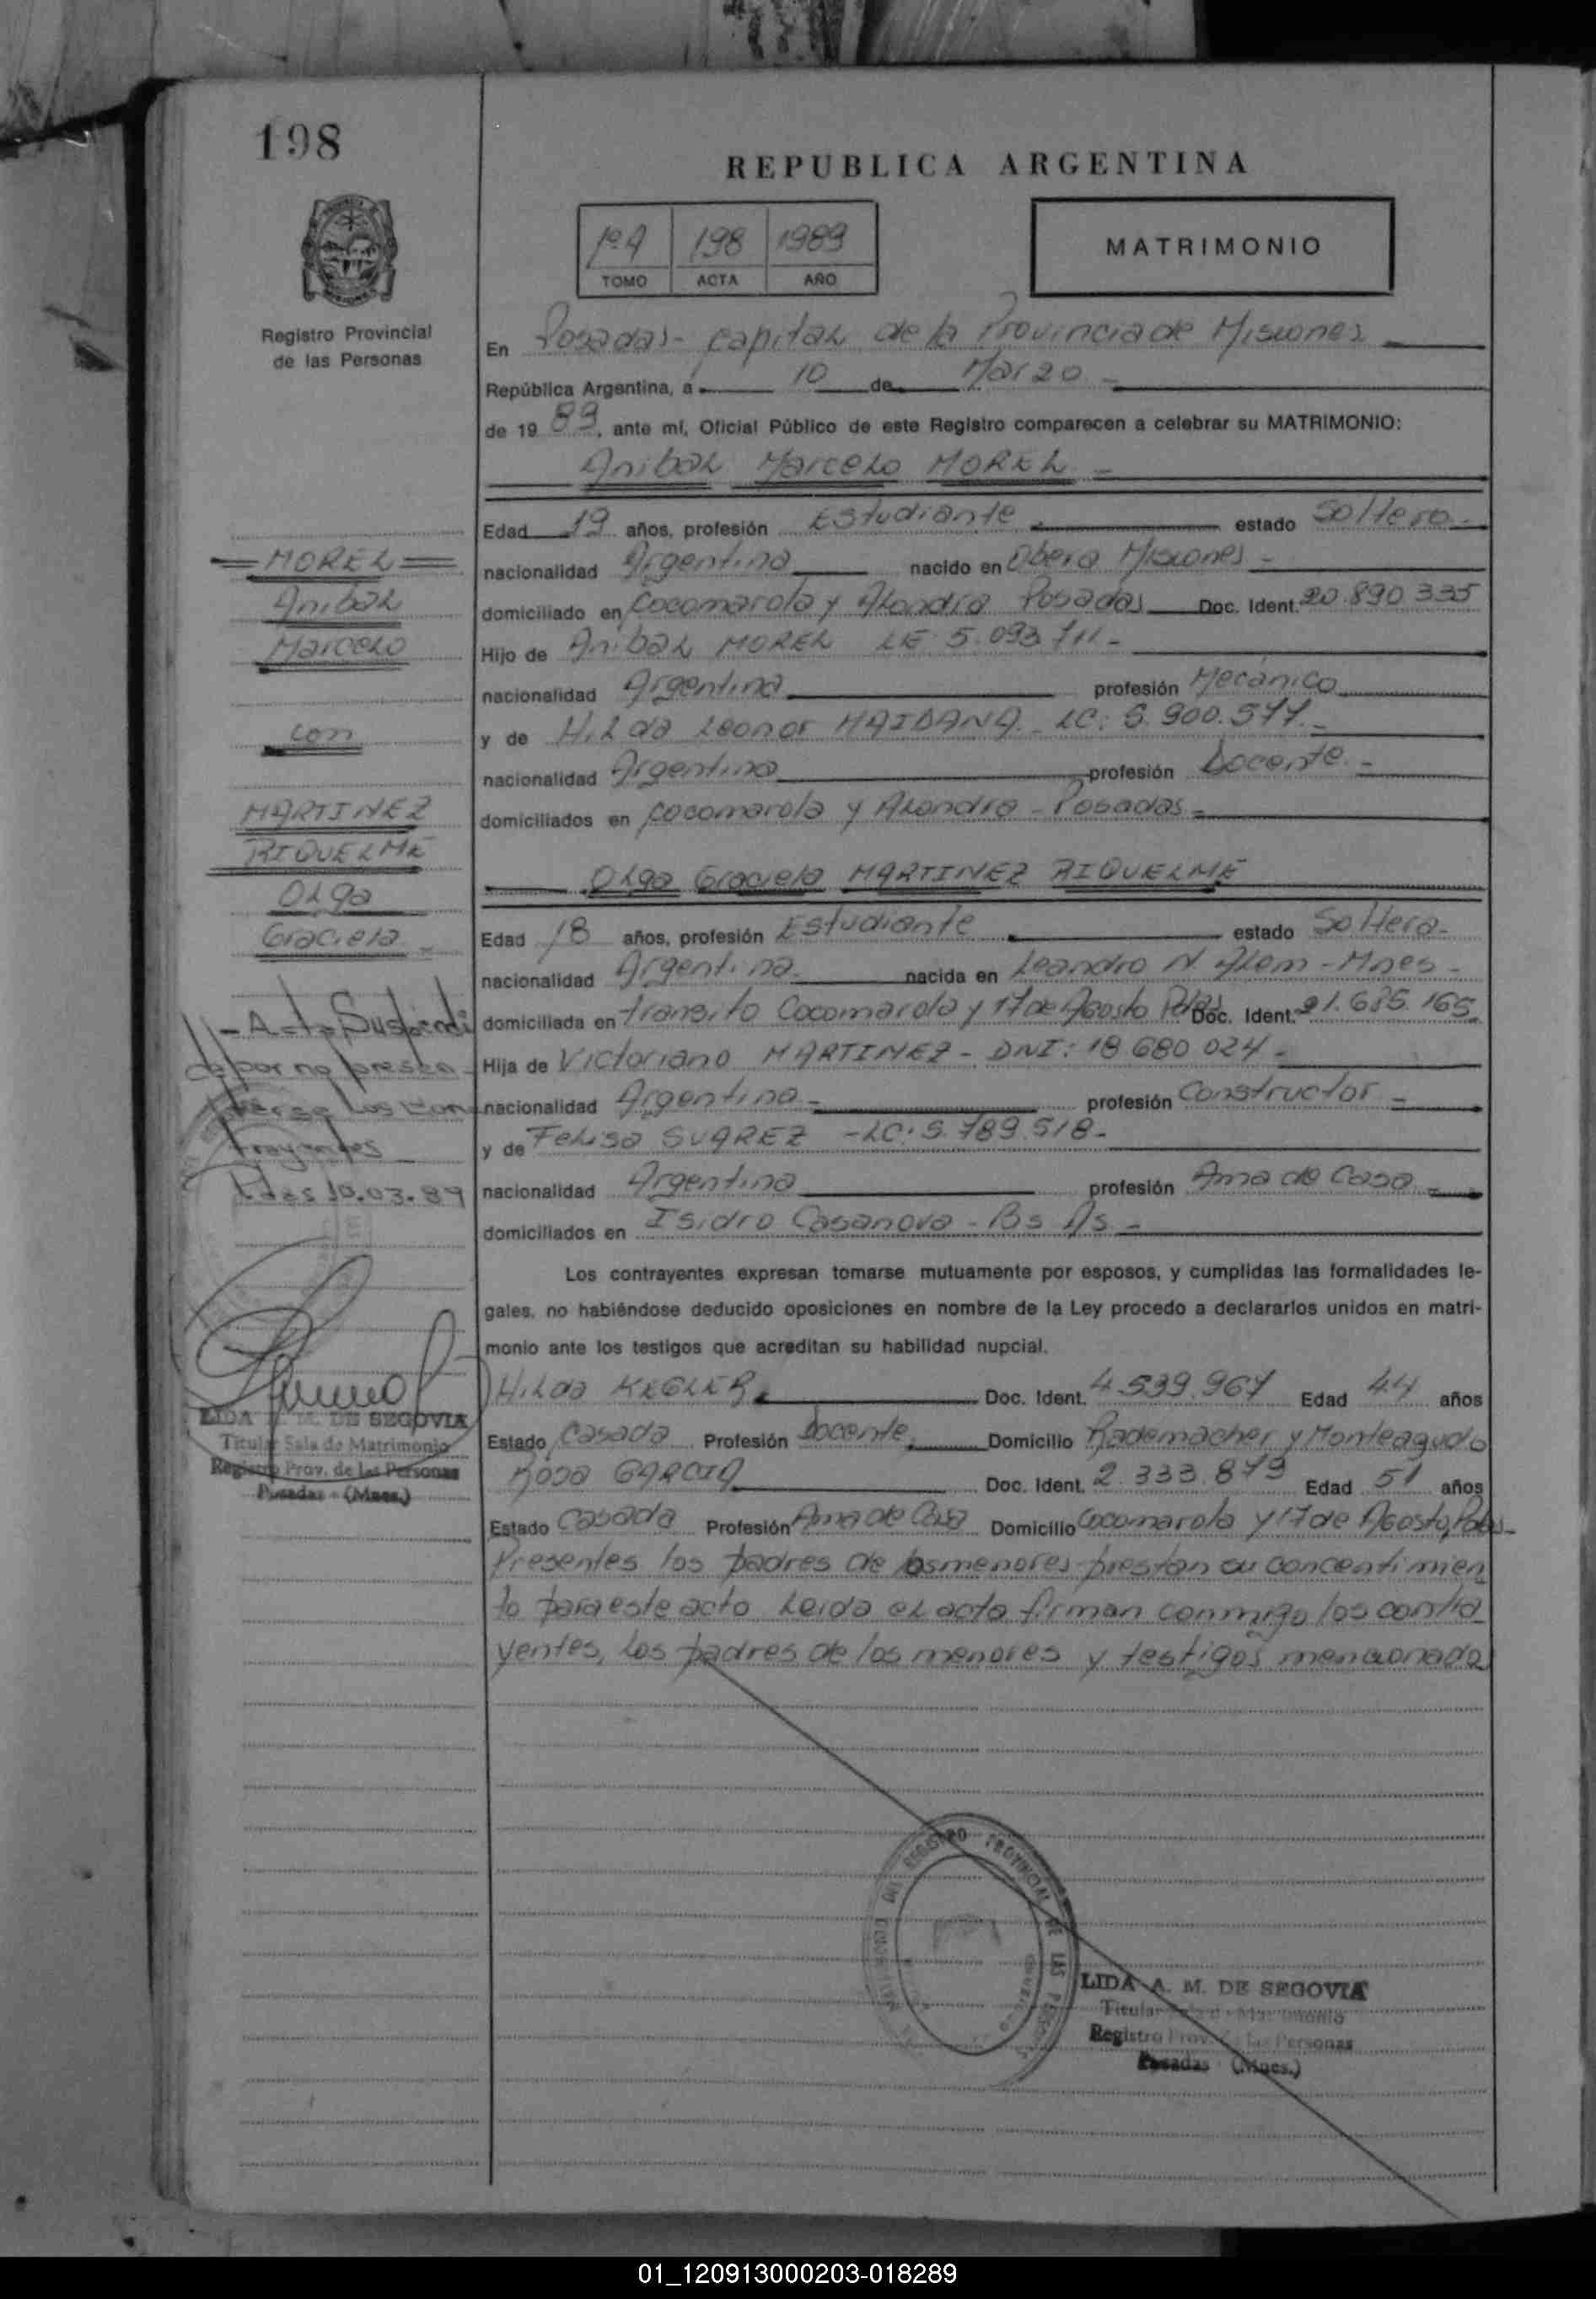 198
REPUBLICA ARGENTINA
1º A 198 1989
TOMO ACTA AÑO
MATRIMONIO
Registro Provincial
de las Personas
En Posadas - Capital de la Provincia de Misiones
República Argentina, a 10 de Marzo -
de 19 89, ante mí, Oficial Público de este Registro comparecen a celebrar su MATRIMONIO:
Anibal Marcelo MOREL -
Edad 19 años, profesión Estudiante estado Soltero -
nacionalidad Argentina nacido en Obera Misiones -
domiciliado en Cocomarola y Alondra Posadas Doc. Ident. 20.890.335
Hijo de Anibal MOREL LE. 5.093.711 -
nacionalidad Argentina profesión Mecánico
y de Hilda Leonor MAIDANA - LC: 5.900.577. -
nacionalidad Argentina profesión Docente -
domiciliados en Cocomarola y Alondra - Posadas -
Olga Graciela MARTINEZ RIQUELME
Edad 18 años, profesión Estudiante estado Soltera -
nacionalidad Argentina nacida en Leandro N. Alem - Mnes -
domiciliada en Transito Cocomarola y 17 de Agosto Pdas Doc. Ident. 21.685.165
Hija de Victoriano MARTINEZ - DNI: 18.680.024 -
nacionalidad Argentina - profesión Constructor -
y de Felisa SUAREZ - LC: 5.789.518 -
nacionalidad Argentina profesión Ama de Casa -
domiciliados en Isidro Casanova - Bs As -
MOREL
Anibal
Marcelo
con
MARTINEZ
RIQUELME
Olga
Graciela -
- Acta Suspendi
da por no presen-
tarse los con-
trayentes
Pdas 10.03.89
LIDA A. M. DE SEGOVIA
Titular Sala de Matrimonio
Registro Prov. de las Personas
Posadas - (Mnes.)
Los contrayentes expresan tomarse mutuamente por esposos, y cumplidas las formalidades le-
gales, no habiéndose deducido oposiciones en nombre de la Ley procedo a declararlos unidos en matri-
monio ante los testigos que acreditan su habilidad nupcial.
Hilda KEGLER Doc. Ident. 4.539.967 Edad 44 años
Estado Casada Profesión Docente Domicilio Rademacher y Monteagudo
Rosa GARCIA Doc. Ident. 2.333.879 Edad 51 años
Estado Casada Profesión Ama de Casa Domicilio Cocomarola y 17 de Agosto, Pdas -
Presentes los padres de los menores prestan su concentimien
to para este acto Leida el acta firman conmigo los contra
yentes, los padres de los menores y testigos mencionado
REGISTRO PROVINCIAL DE LAS
LIDA A. M. DE SEGOVIA
Titular Sala de Matrimonio
Registro Prov. de las Personas
Posadas (Mnes.)
01_120913000203-018289